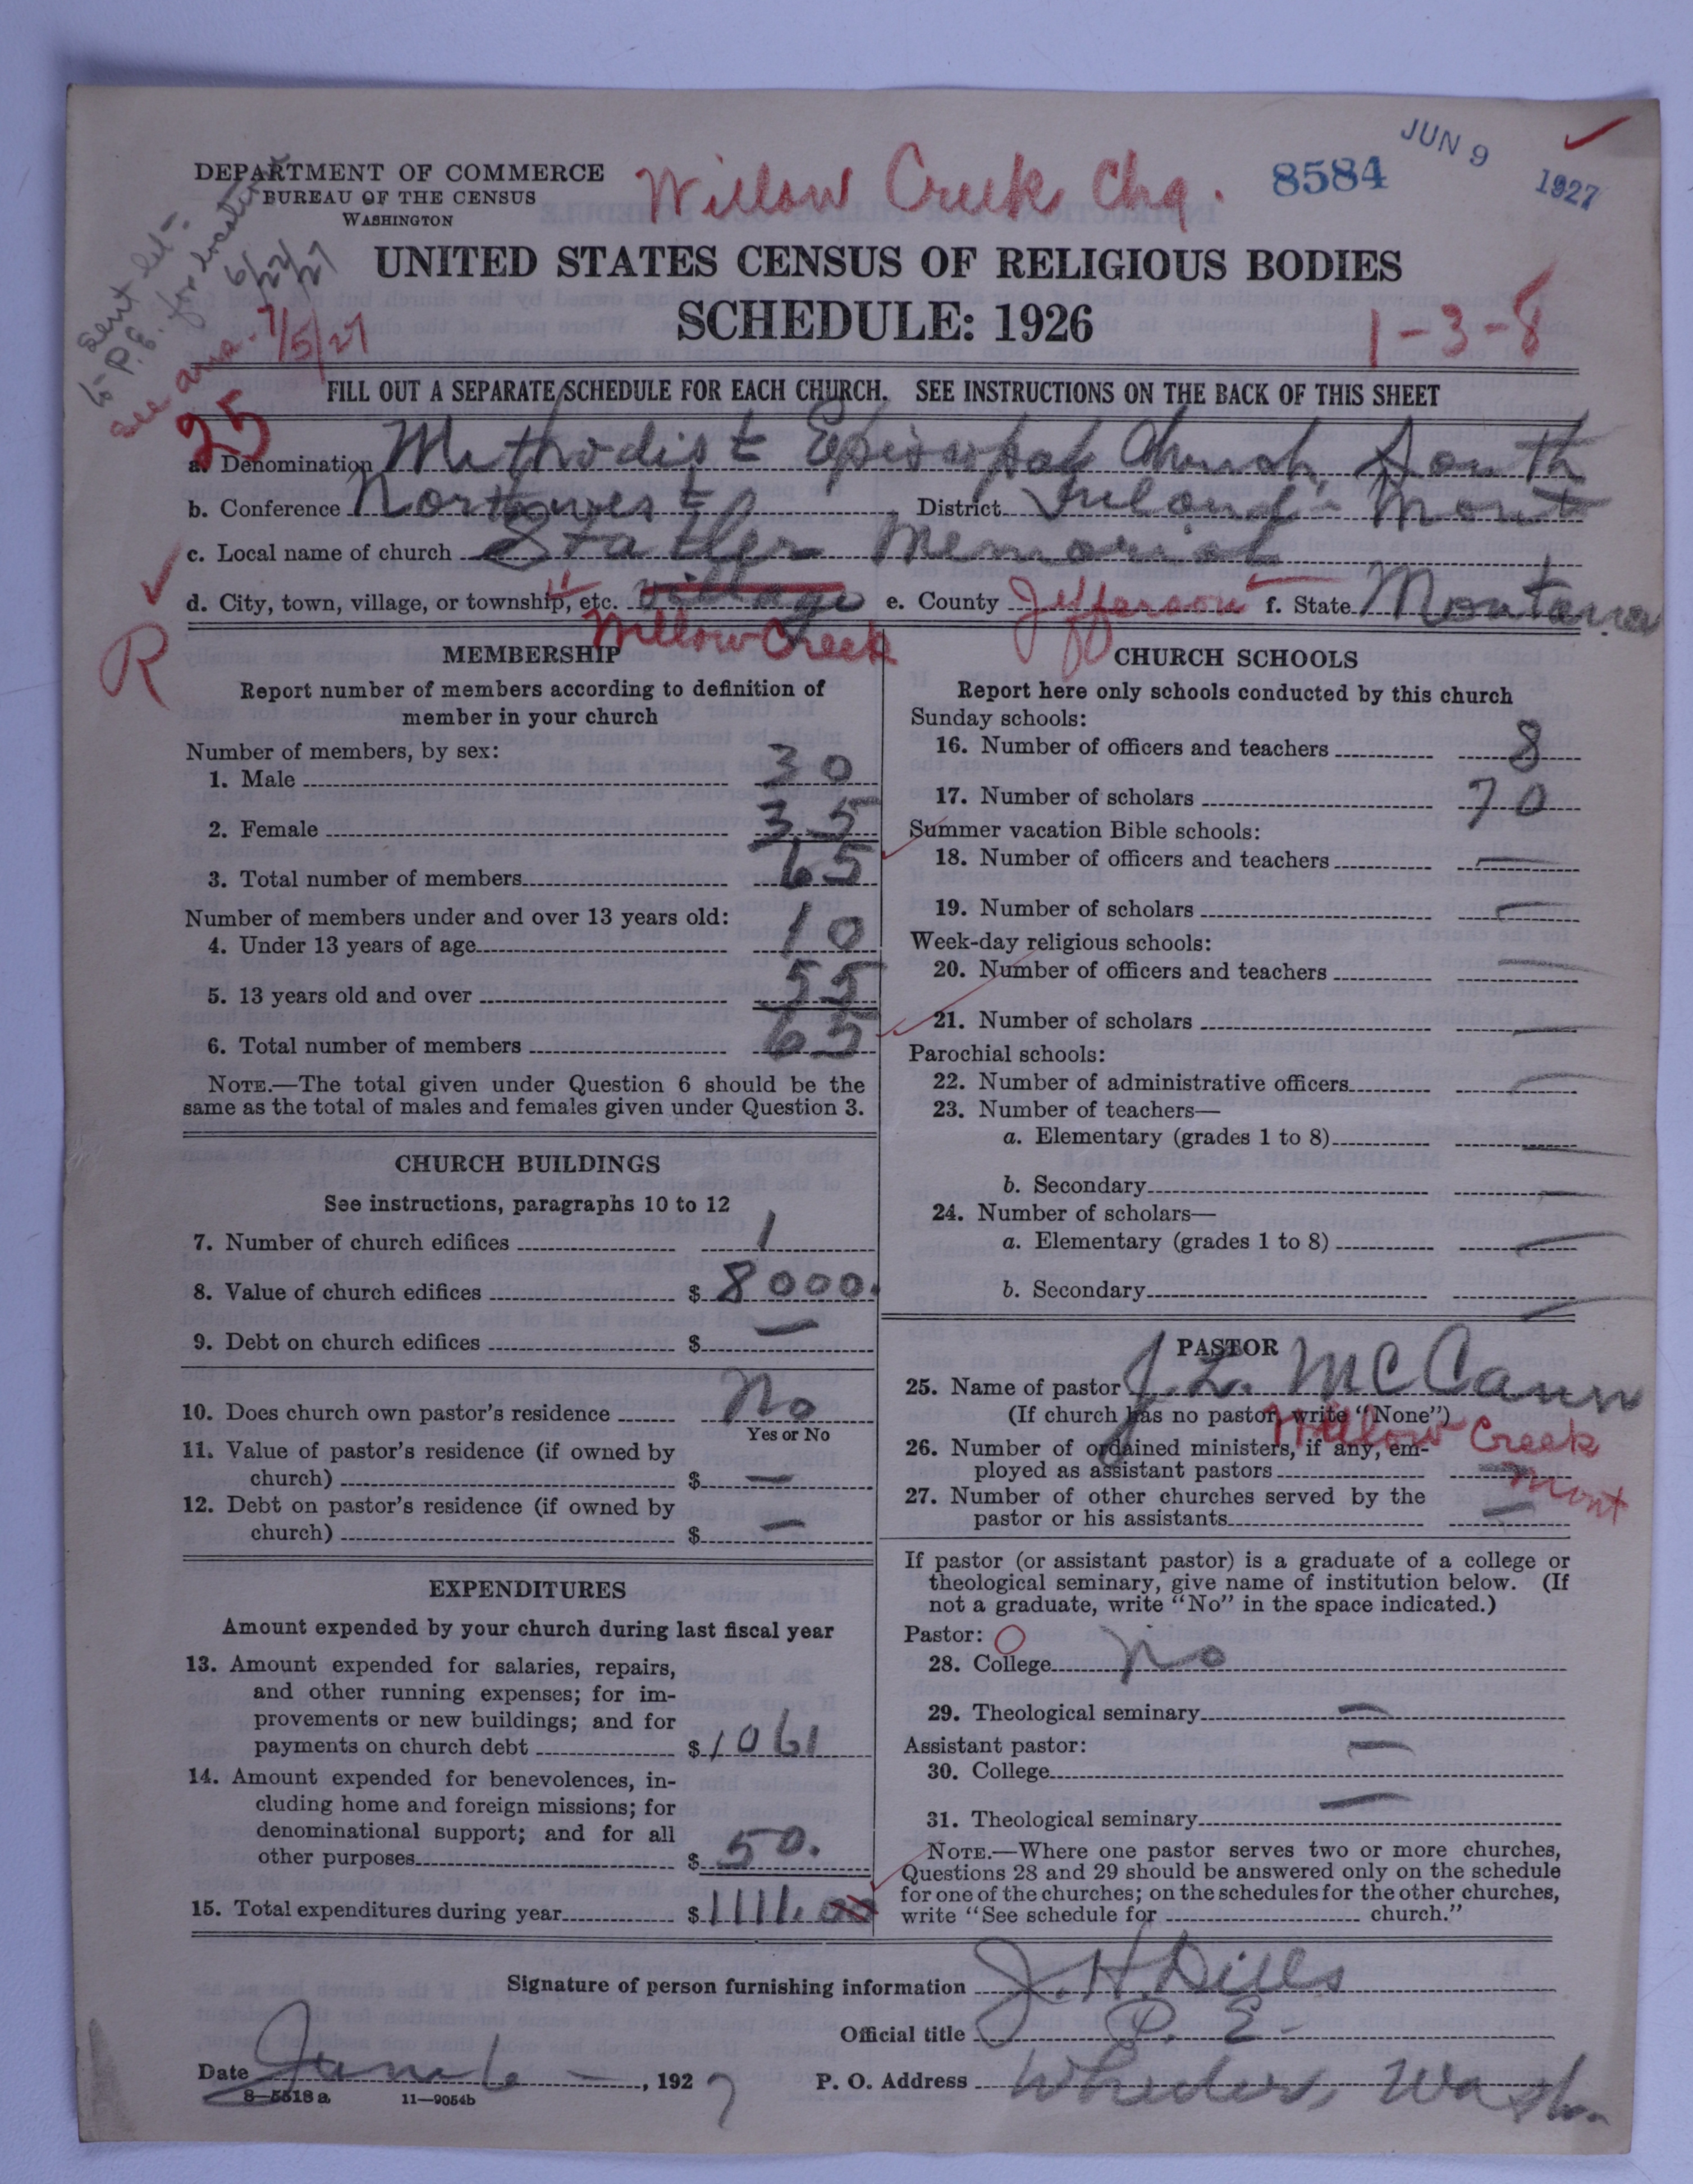 JUN 9 1927
8584
Willow Creek Chg.
DEPARTMENT OF COMMERCE
BUREAU OF THE CENSUS
WASHINGTON
sent let-
to P.E. for location
6/22/27
See ans. 7/5/27
UNITED STATES CENSUS OF RELIGIOUS BODIES
SCHEDULE: 1926
1-3-8
FILL OUT A SEPARATE SCHEDULE FOR EACH CHURCH. SEE INSTRUCTIONS ON THE BACK OF THIS SHEET
25
a. Denomination Methodist Episcopal Church South
b. Conference Northwest, District Inland - Mont
c. Local name of church Statler Memorial
d. City, town, village, or township, etc. village e. County Jefferson f. State Montana
Willow Creek
R
MEMBERSHIP
Report number of members according to definition of
member in your church
Number of members, by sex:
1. Male 30
2. Female 35
3. Total number of members 65
Number of members under and over 13 years old:
4. Under 13 years of age 10
5. 13 years old and over 55
6. Total number of members 65
NOTE.—The total given under Question 6 should be the
same as the total of males and females given under Question 3.
CHURCH BUILDINGS
See instructions, paragraphs 10 to 12
7. Number of church edifices 1
8. Value of church edifices $ 8000.
9. Debt on church edifices $ —
10. Does church own pastor's residence No
Yes or No
11. Value of pastor's residence (if owned by
church) $ —
12. Debt on pastor's residence (if owned by
church) $ —
EXPENDITURES
Amount expended by your church during last fiscal year
13. Amount expended for salaries, repairs,
and other running expenses; for im-
provements or new buildings; and for
payments on church debt $ 1061
14. Amount expended for benevolences, in-
cluding home and foreign missions; for
denominational support; and for all
other purposes $ 50.
15. Total expenditures during year $ 1111.00
CHURCH SCHOOLS
Report here only schools conducted by this church
Sunday schools:
16. Number of officers and teachers 8
17. Number of scholars 70
Summer vacation Bible schools:
18. Number of officers and teachers —
19. Number of scholars —
Week-day religious schools:
20. Number of officers and teachers —
21. Number of scholars —
Parochial schools:
22. Number of administrative officers —
23. Number of teachers—
a. Elementary (grades 1 to 8) —
b. Secondary —
24. Number of scholars—
a. Elementary (grades 1 to 8) —
b. Secondary —
PASTOR
25. Name of pastor J. L. McCann
(If church has no pastor, write "None")
Willow Creek
Mont
26. Number of ordained ministers, if any, em-
ployed as assistant pastors —
27. Number of other churches served by the
pastor or his assistants —
If pastor (or assistant pastor) is a graduate of a college or
theological seminary, give name of institution below. (If
not a graduate, write "No" in the space indicated.)
Pastor: O
28. College No
29. Theological seminary —
Assistant pastor:
30. College —
31. Theological seminary —
NOTE.—Where one pastor serves two or more churches,
Questions 28 and 29 should be answered only on the schedule
for one of the churches; on the schedules for the other churches,
write "See schedule for church."
Signature of person furnishing information J. H. Dills
Official title P. E.
Date June 6 —, 1927 P. O. Address Wheeler, Wash.
8—5518a 11—9054b